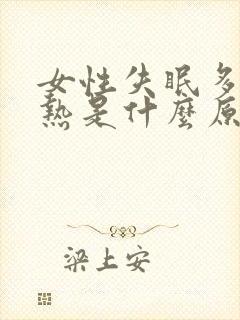 女性失眠多
熱是什麼原
梁上安